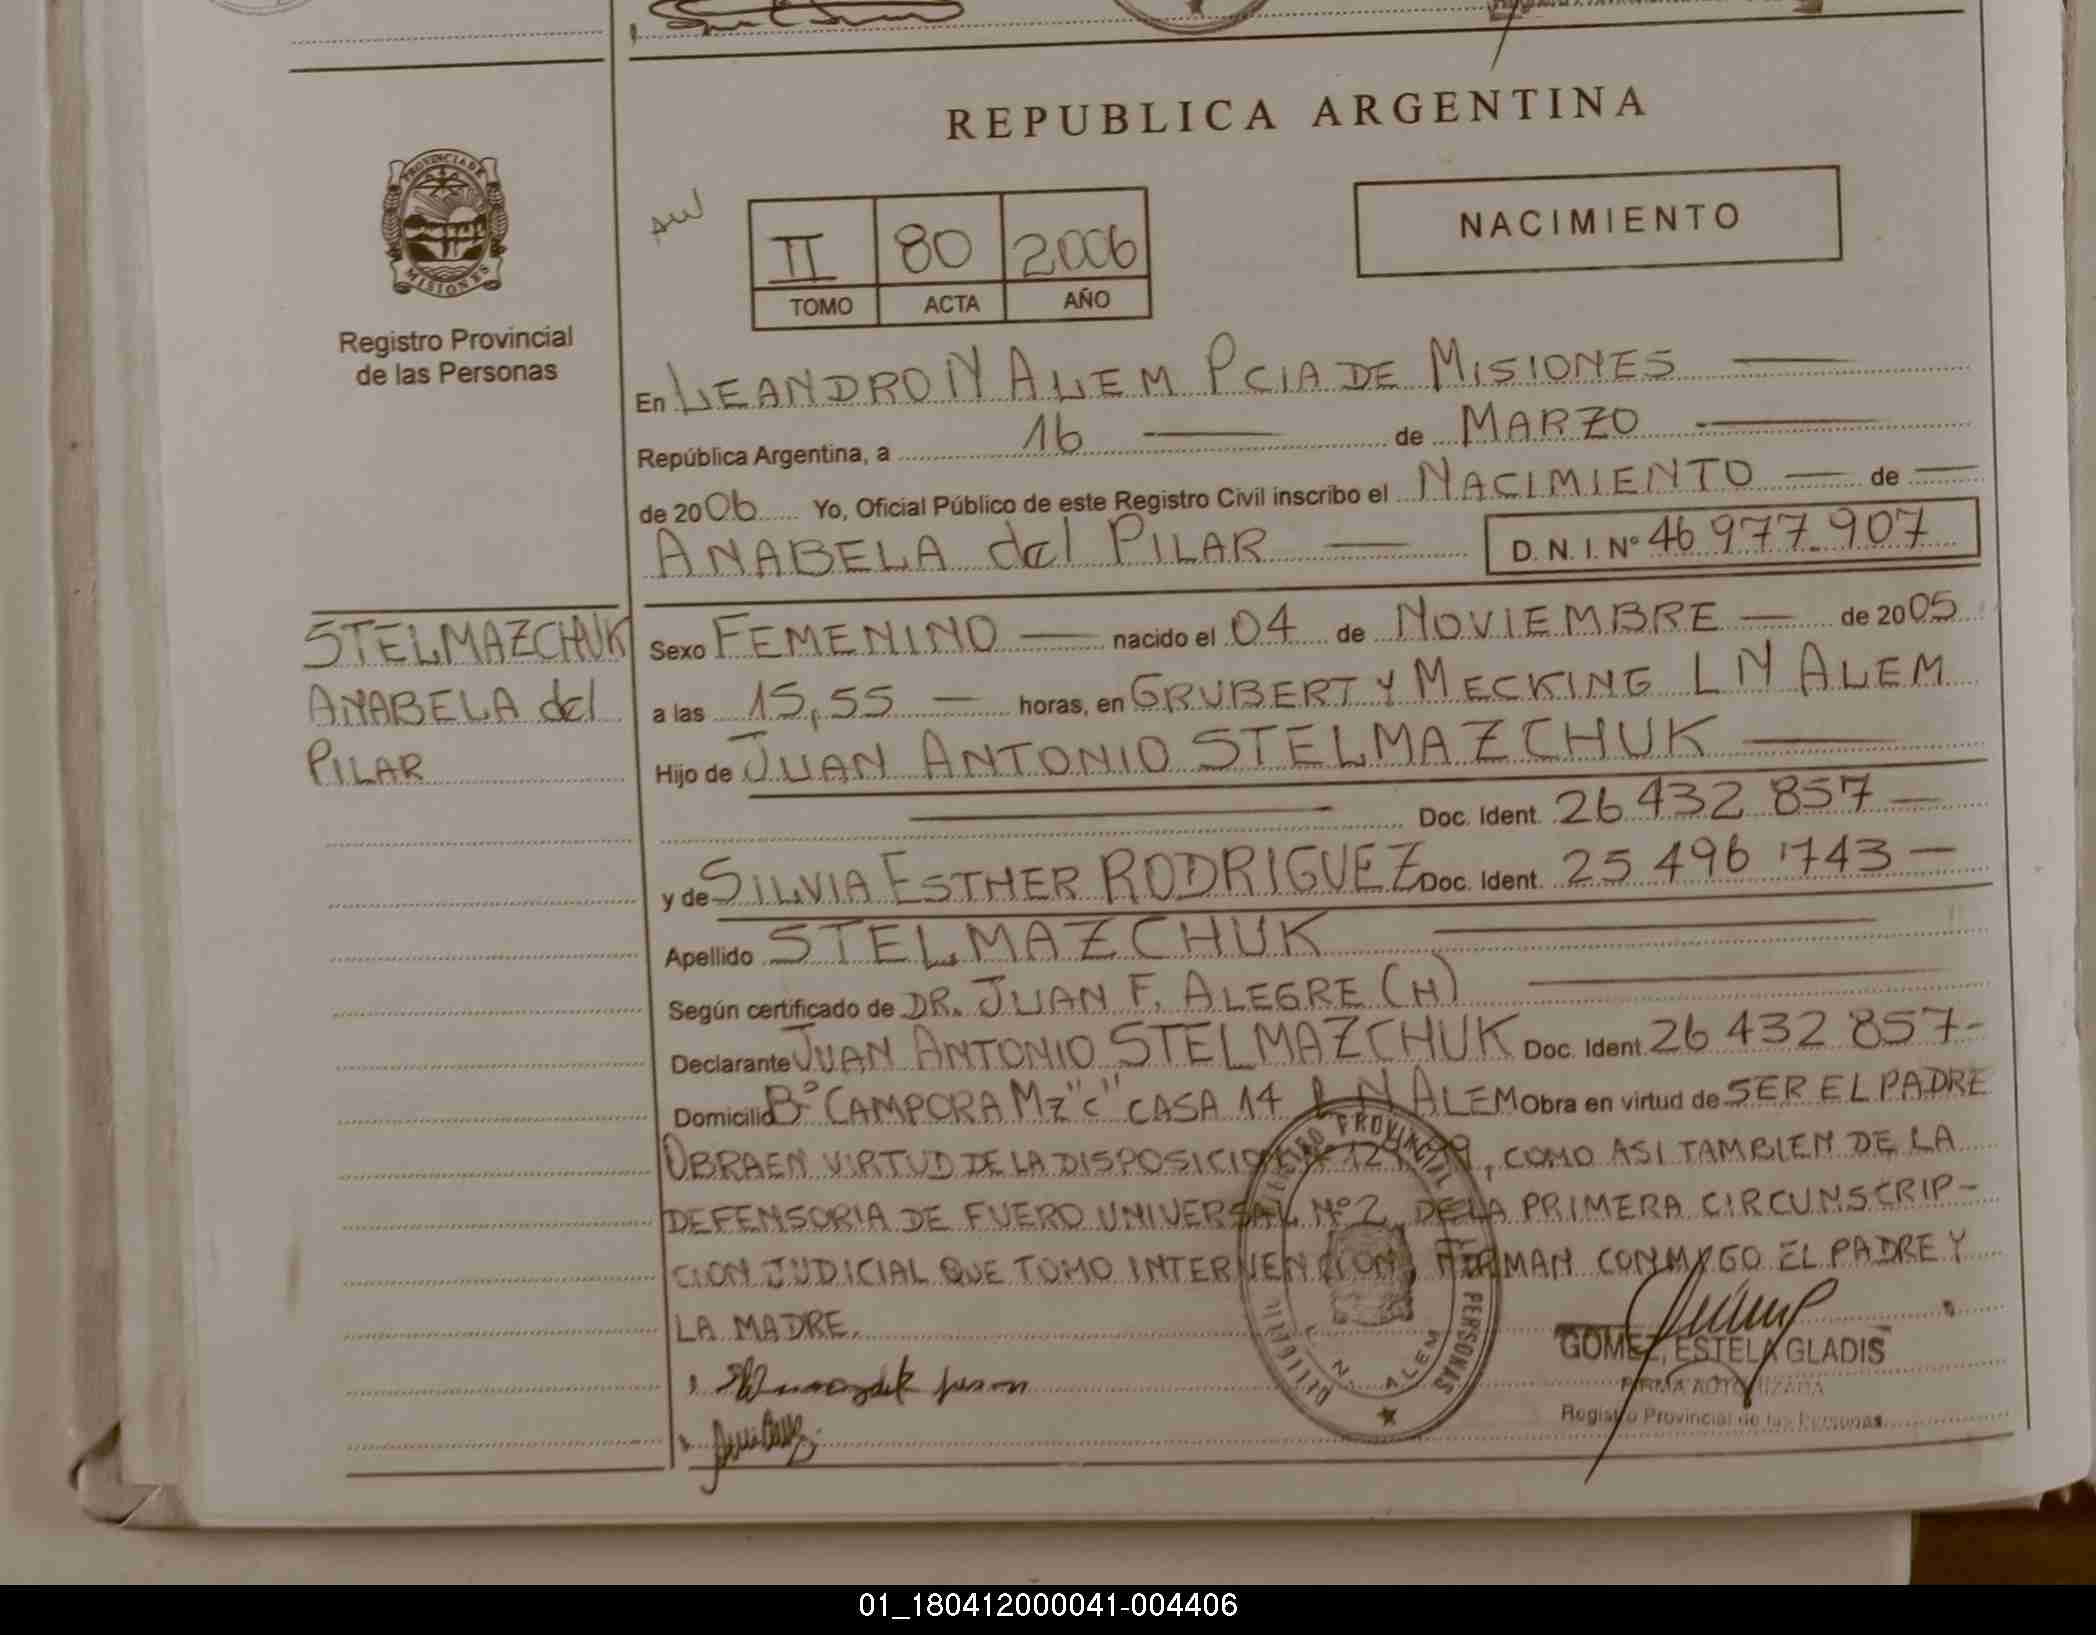 REPUBLICA ARGENTINA
PROVINCIA DE
MISIONES
Registro Provincial
de las Personas
II 80 2006
TOMO ACTA AÑO
NACIMIENTO
En LEANDRO N ALEM PCIA DE MISIONES
República Argentina, a 16 de MARZO
de 2006 Yo, Oficial Público de este Registro Civil inscribo el NACIMIENTO de
ANABELA del PILAR D. N. I. Nº 46 977.907
STELMAZCHUK
ANABELA del
PILAR
Sexo FEMENINO nacido el 04 de NOVIEMBRE de 2005
a las 15,55 horas, en GRUBERT Y MECKING L N ALEM
Hijo de JUAN ANTONIO STELMAZCHUK
Doc. Ident. 26 432 857
y de SILVIA ESTHER RODRIGUEZ Doc. Ident. 25 496 743
Apellido STELMAZCHUK
Según certificado de DR. JUAN F. ALEGRE (H)
Declarante JUAN ANTONIO STELMAZCHUK Doc. Ident. 26 432 857-
Domicilio Bº CAMPORA Mz "c" CASA 14 L N ALEM Obra en virtud de SER EL PADRE
OBRA EN VIRTUD DE LA DISPOSICION , COMO ASI TAMBIEN DE LA
DEFENSORIA DE FUERO UNIVERSAL Nº 2 DE LA PRIMERA CIRCUNSCRIP-
CION JUDICIAL QUE TOMO INTERVENCION, FIRMAN CONMIGO EL PADRE Y
LA MADRE.
REGISTRO PROVINCIAL PERSONAS
L. N. ALEM
GOMEZ, ESTELA GLADIS
FIRMA AUTORIZADA
Registro Provincial de las Personas
01_180412000041-004406